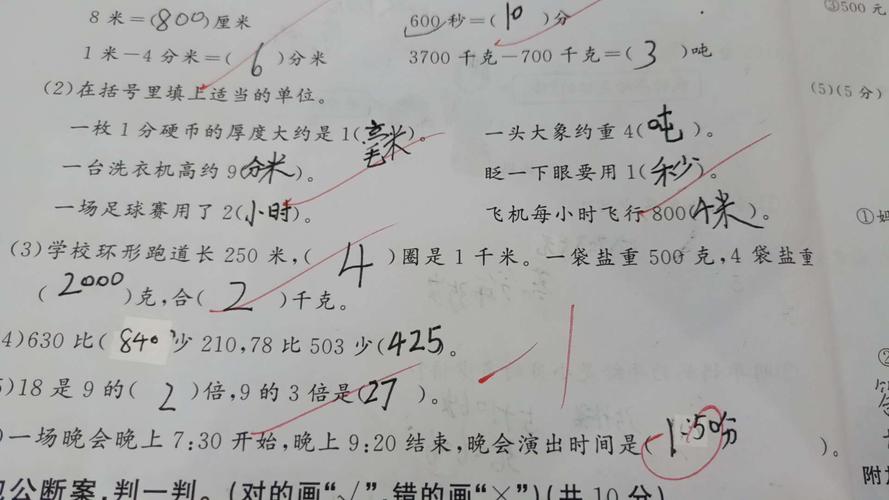 8 米=(800)厘米 600 秒=(10)分 ③500 元
1 米－4 分米=(6)分米 3700 千克－700 千克=(3)吨
(2)在括号里填上适当的单位。 (5)(5 分)
一枚 1 分硬币的厚度大约是 1(毫米)。 一头大象约重 4(吨)。
一台洗衣机高约 9(分米)。 眨一下眼要用 1(秒)。
一场足球赛用了 2(小时)。 飞机每小时飞行 800(千米)。
(3)学校环形跑道长 250 米,(4)圈是 1 千米。一袋盐重 500 克,4 袋盐重
(2000)克,合(2)千克。
4)630 比(840)少 210,78 比 503 少(425)。
)18 是 9 的(2)倍,9 的 3 倍是(27)。
)一场晚会晚上 7:30 开始,晚上 9:20 结束,晚会演出时间是(1:50分)。
公断案,判一判。(对的画“√”,错的画“×”)(共 10 分)
附